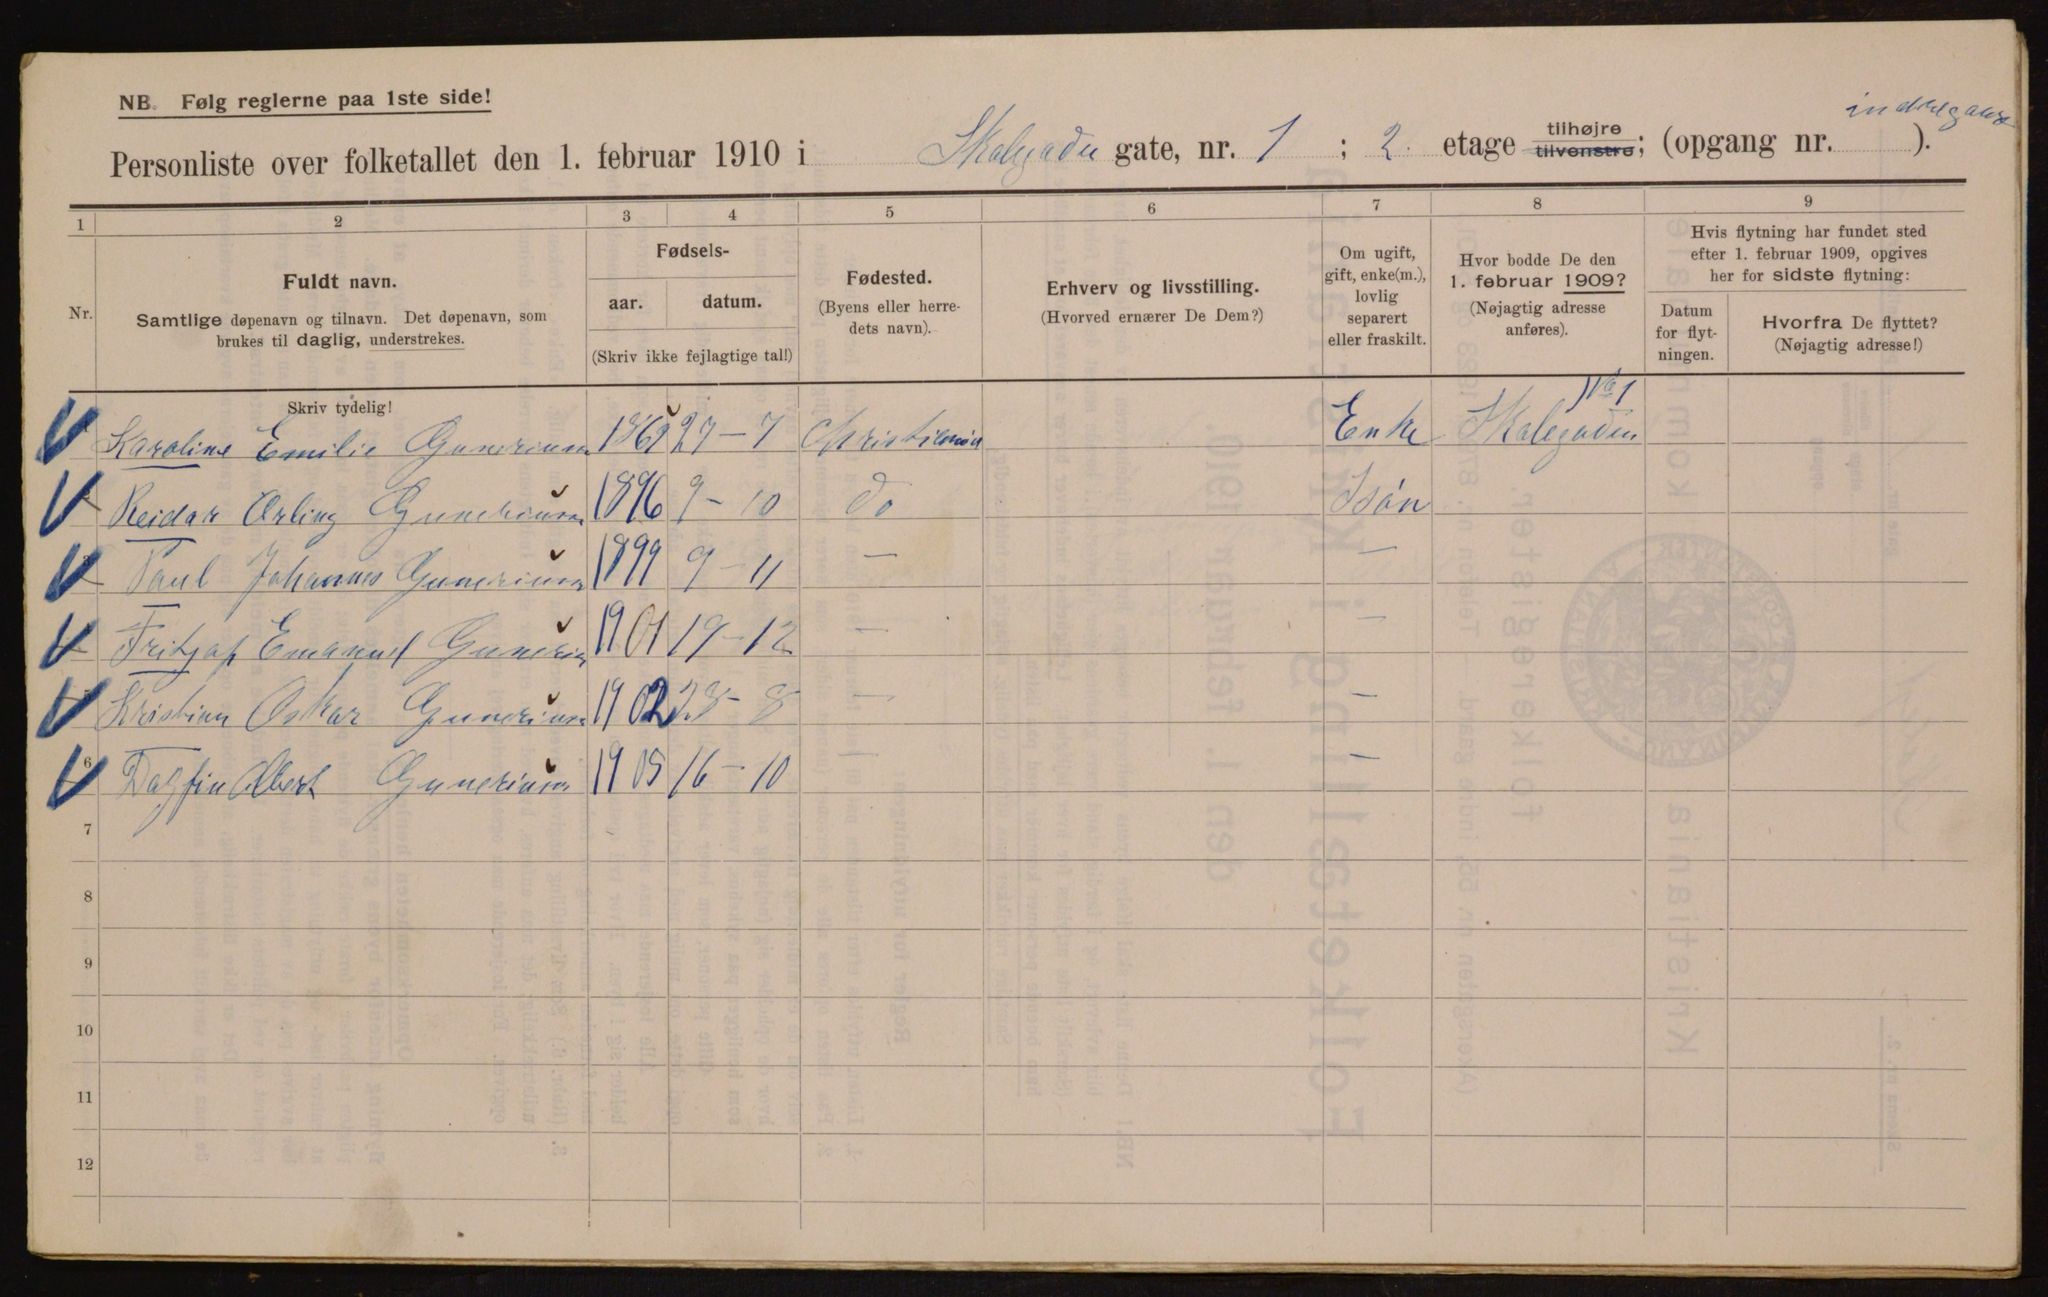 NB. Følg reglerne paa 1ste side!
Personliste over folketallet den 1. februar 1910 i Skalegaden gate, nr. 1 ; 2. etage tilhøjre tilvenstre; (opgang nr. ).
1 2 3 4 5 6 7 8 9
Nr.
Fuldt navn.
Samtlige døpenavn og tilnavn. Det døpenavn, som
brukes til daglig, understrekes.
Fødsels-
aar. datum.
(Skriv ikke fejlagtige tal!)
Fødested.
(Byens eller herre-
dets navn).
Erhverv og livsstilling.
(Hvorved ernærer De Dem?)
Om ugift,
gift, enke(m.),
lovlig
separert
eller fraskilt.
Hvor bodde De den
1. februar 1909?
(Nøjagtig adresse
anføres).
Hvis flytning har fundet sted
efter 1. februar 1909, opgives
her for sidste flytning:
Datum
for flyt-
ningen.
Hvorfra De flyttet?
(Nøjagtig adresse!)
Skriv tydelig!
Karoline Emilie Gunerius 27-7 Christiania Enke Skalegaden No 1
Reidar Erling Gunerius 1896 9-10 do Søn
Paul Johannes Gunerius 1899 9-11 — —
Fritjof Emanuel Gunerius 1901 19-12 — —
Kristian Oskar Gunerius 1902 28-8 — —
6 Dagfin Albert Gunerius 1905 16-10 — —
7
8
9
10
11
12